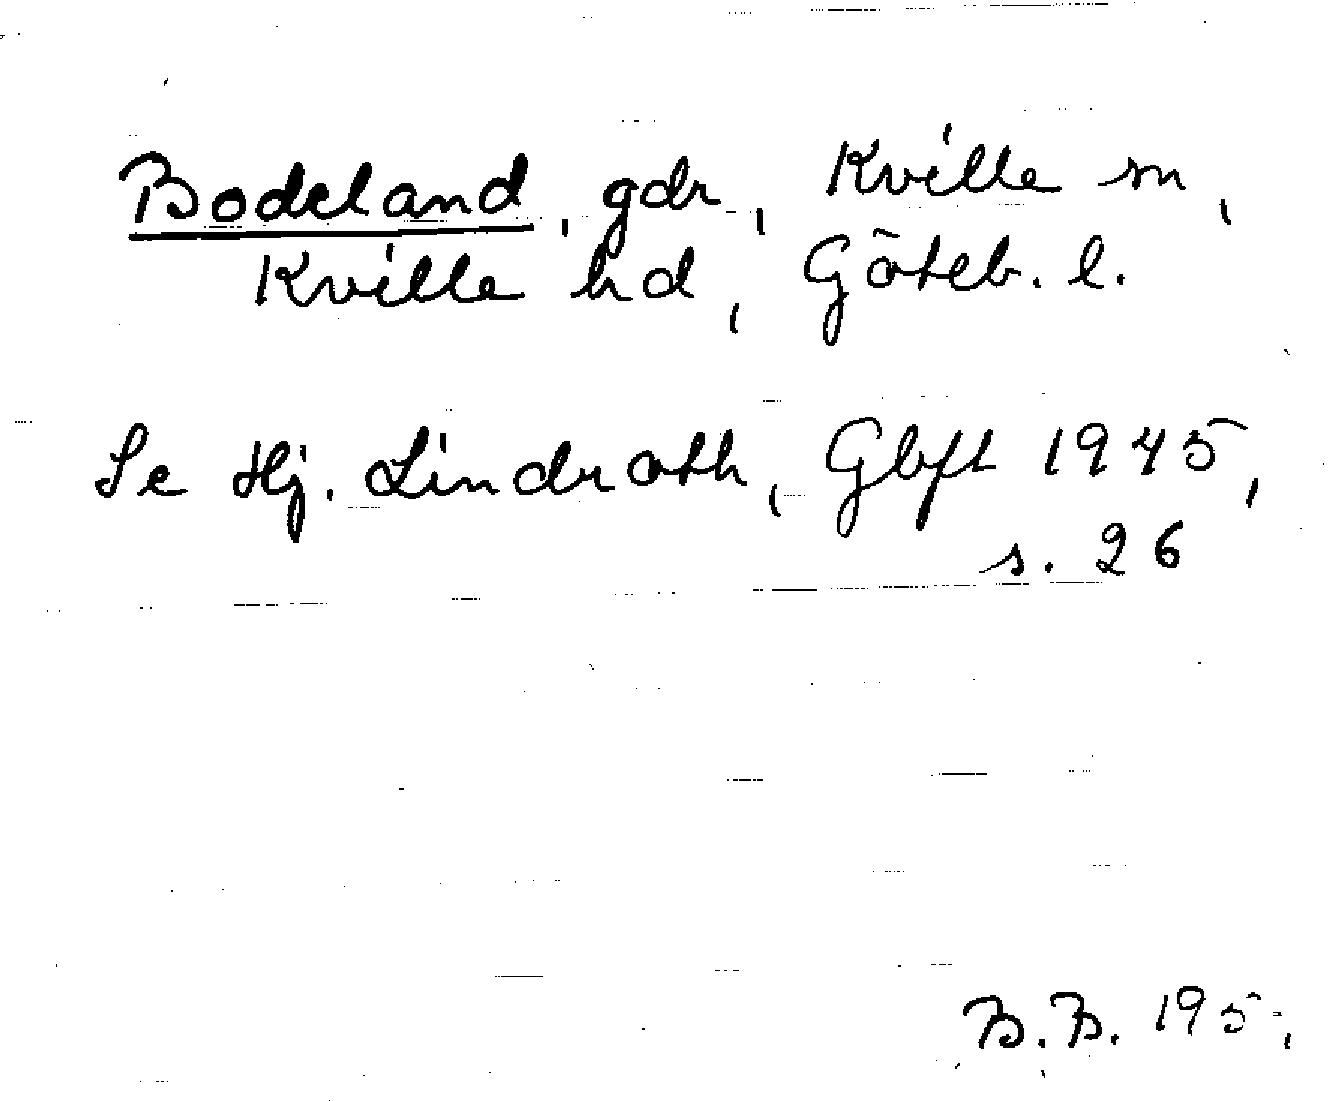 Bodeland, gdr, Kville sn,
Kville hd, Göteb. l.
Se Hj. Lindroth, Gbft 1945,
s. 26
B.B.